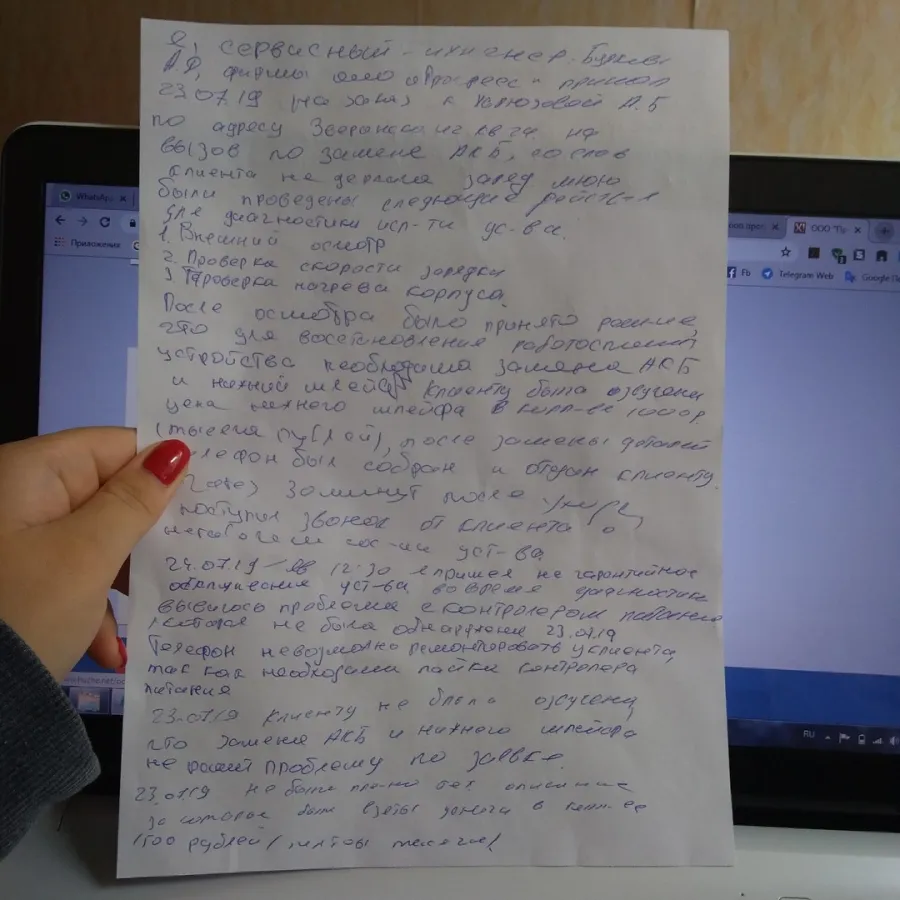 Я, сервисный - инженер
А.Д, фирмы ооо «Прогресс» пришол
23.07.19 на заказ к А.Б
по адресу кв 24 на
вызов по замене АКБ, со слов
клиента не держала заряд мною
были проведены следующие действ-я
для диагностики исп-ти ус-ва.
1. Внешний осмотр
2. Проверка скорости зарядки
3. Проверка нагрева корпуса.
После осмотра было принято решение,
что для восстановления работоспособ
устройства необходима замена АКБ
и нижний шлейф клиенту была озвучена
цена нижнего шлейфа в 1000р.
(тысяча рублей), после замены деталей
телефон был собран и отдан клиенту.
после
поступил звонок от клиента о
сос-ии уст-ва
24.07.19 - в 12:30 я пришел на гарантийное
обслуживание уст-ва, во время диагностики
вывилось проблема с контролером питания
которая не была обнаружена 23.07.19
Телефон невозможно ремонтировать у клиента,
так как необходими пайки контролера
питания
23.07.19 клиенту не была озвучена,
что замена АКБ и нижнего шлейфа
не решит проблему по заявке.
23.07.19 не было
за которое были взяты деньги в
1500 рублей
WhatsApp
Приложения
ООО "Пр
Fb
Telegram Web
Google
RU